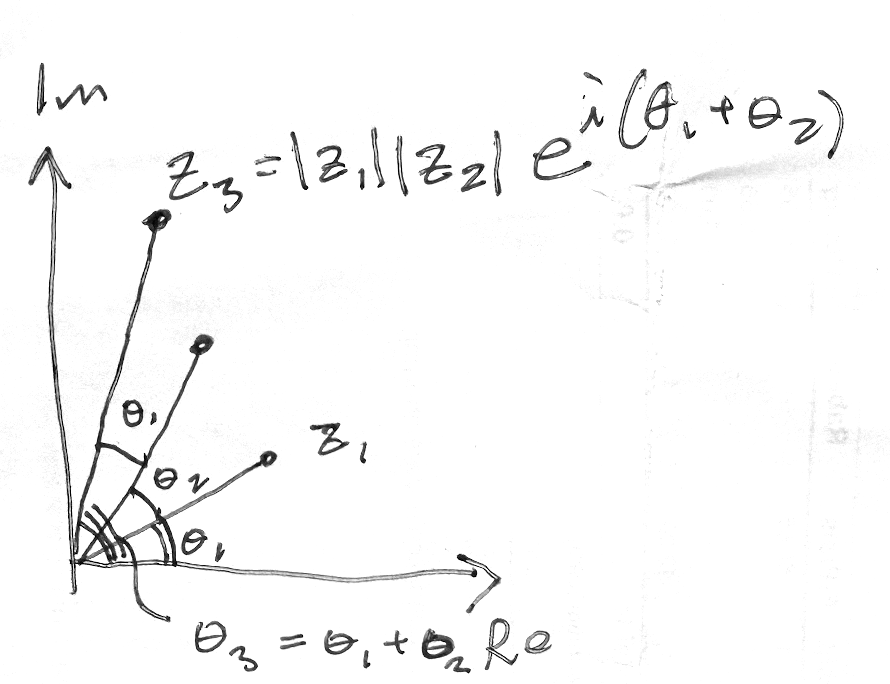 Im
z₃ = |z₁||z₂| e^{i(θ₁+θ₂)}
θ₁
z₁
θ₂
θ₁
θ₃ = θ₁ + θ₂ Re